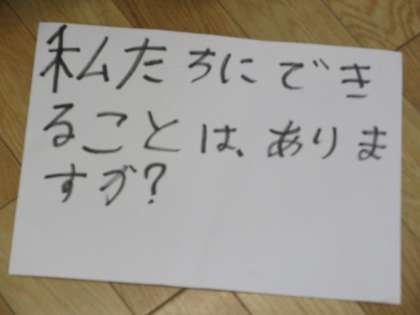 私たちにでき
ることは、ありま
すか?